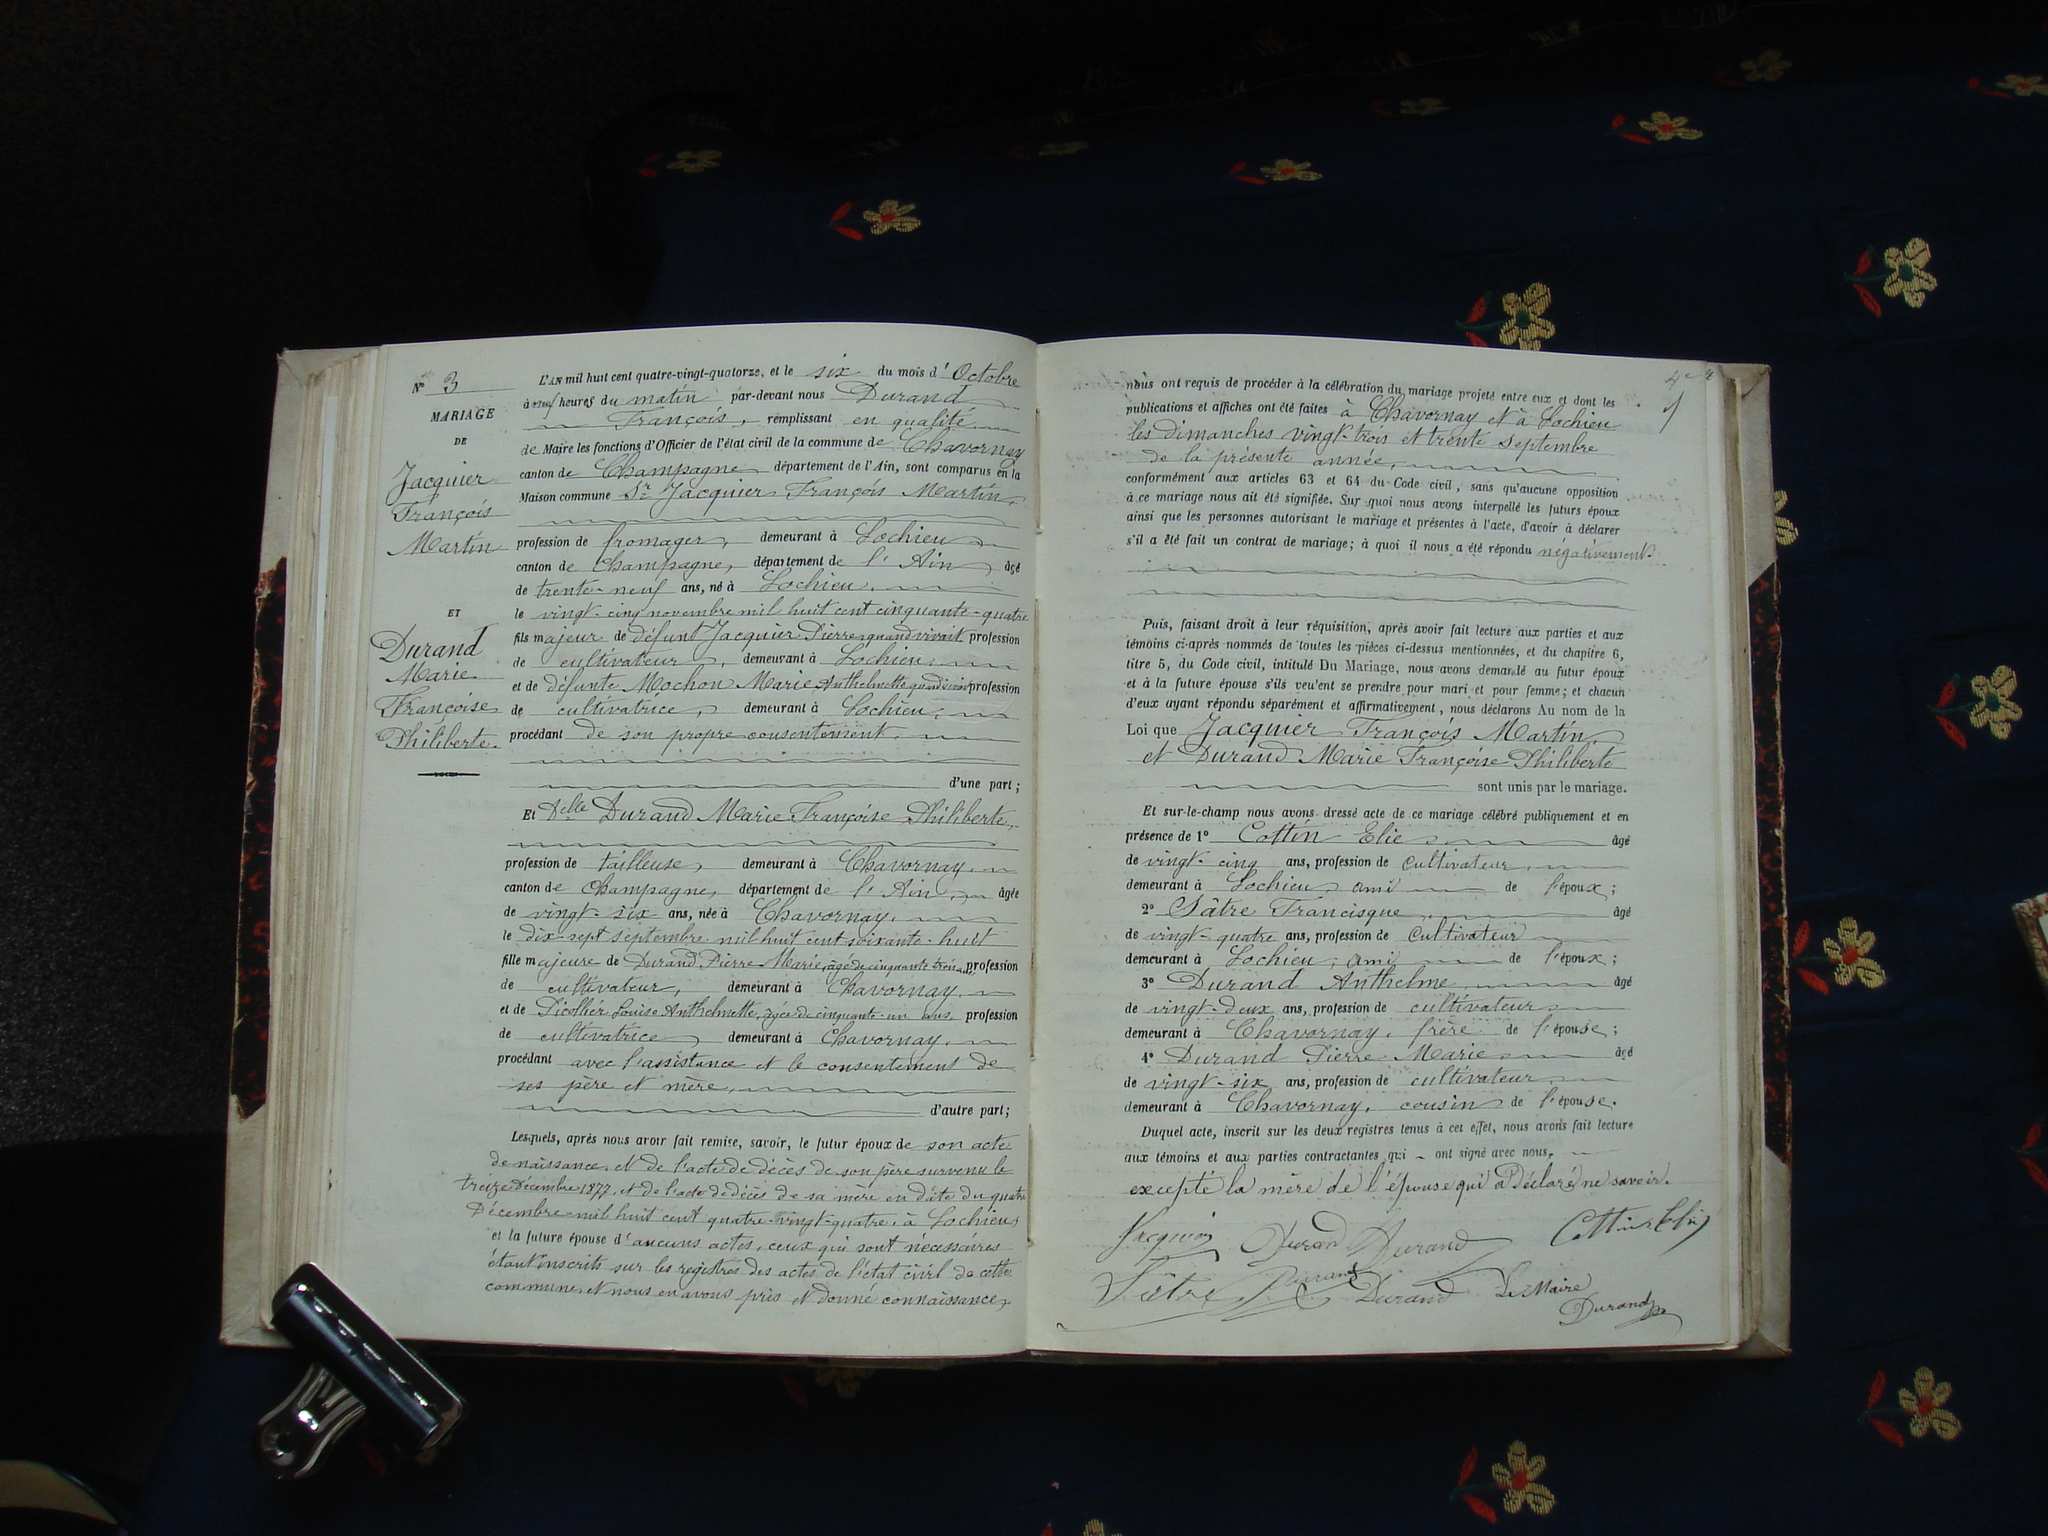 N° 3
MARIAGE
DE
Jacquier
François
Martin
ET
Durand
Marie
Françoise
Philiberte.
L'AN mil huit cent quatre-vingt-quatorze, et le six du mois d'Octobre
à neuf heures du matin par-devant nous Durand
François, remplissant en qualité
de Maire les fonctions d'Officier de l'état civil de la commune de Chavornay
canton de Champagne département de l'Ain, sont comparus en la
Maison commune Sr Jacquier François Martin,
profession de fromager, demeurant à Lochieu
canton de Champagne, département de l'Ain âgé
de trente-neuf ans, né à Lochieu,
le vingt-cinq novembre mil huit cent cinquante-quatre
fils majeur de défunt Jacquier Pierre quand vivait profession
de cultivateur, demeurant à Lochieu,
et de défunte Mochon Marie Anthelmette quand vivait profession
de cultivatrice, demeurant à Lochieu,
procédant de son propre consentement,
d'une part;
Et Delle Durand Marie Françoise Philiberte,
profession de tailleuse, demeurant à Chavornay,
canton de Champagne, département de l'Ain, âgée
de vingt-six ans, née à Chavornay,
le dix-sept septembre mil huit cent soixante-huit
fille majeure de Durand Pierre-Marie, âgé de cinquante trois ans, profession
de cultivateur, demeurant à Chavornay,
et de Picollier Louise Anthelmette, âgée de cinquante-un ans, profession
de cultivatrice, demeurant à Chavornay,
procédant avec l'assistance et le consentement de
ses père et mère,
d'autre part;
Lesquels, après nous avoir fait remise, savoir, le futur époux de son acte
de naissance, et de l'acte de décès de son père survenu le
treize Décembre 1877, et de l'acte de décès de sa mère en date du quatre
Décembre mil huit cent quatre-vingt-quatre, à Lochieu,
et la future épouse d'aucuns actes, ceux qui sont nécessaires
étant inscrits sur les registres des actes de l'état civil de cette
commune, et nous en avons pris et donné connaissance,
nous ont requis de procéder à la célébration du mariage projeté entre eux et dont les
publications et affiches ont été faites à Chavornay et à Lochieu
les dimanches vingt-trois et trente septembre
de la présente année,
conformément aux articles 63 et 64 du Code civil, sans qu'aucune opposition
à ce mariage nous ait été signifiée. Sur quoi nous avons interpellé les futurs époux
ainsi que les personnes autorisant le mariage et présentes à l'acte, d'avoir à déclarer
s'il a été fait un contrat de mariage; à quoi il nous a été répondu négativement.
Puis, faisant droit à leur réquisition, après avoir fait lecture aux parties et aux
témoins ci-après nommés de toutes les pièces ci-dessus mentionnées, et du chapitre 6,
titre 5, du Code civil, intitulé Du Mariage, nous avons demandé au futur époux
et à la future épouse s'ils veulent se prendre pour mari et pour femme; et chacun
d'eux ayant répondu séparément et affirmativement, nous déclarons Au nom de la
Loi que Jacquier François Martin
et Durand Marie Françoise Philiberte
sont unis par le mariage.
Et sur-le-champ nous avons dressé acte de ce mariage célébré publiquement et en
présence de 1° Cottin Elie âgé
de vingt-cinq ans, profession de cultivateur,
demeurant à Lochieu, ami de l'époux;
2° Sâtre Francisque, âgé
de vingt-quatre ans, profession de cultivateur
demeurant à Lochieu, ami de l'époux;
3° Durand Anthelme, âgé
de vingt-deux ans, profession de cultivateur
demeurant à Chavornay, frère de l'épouse;
4° Durand Pierre-Marie âgé
de vingt-six ans, profession de cultivateur
demeurant à Chavornay, cousin de l'épouse.
Duquel acte, inscrit sur les deux registres tenus à cet effet, nous avons fait lecture
aux témoins et aux parties contractantes qui ont signé avec nous,
excepté la mère de l'épouse qui a déclaré ne savoir.
Jacquier Durand Durand Cottin Elie
Sâtre Durand Durand Le Maire
Durand